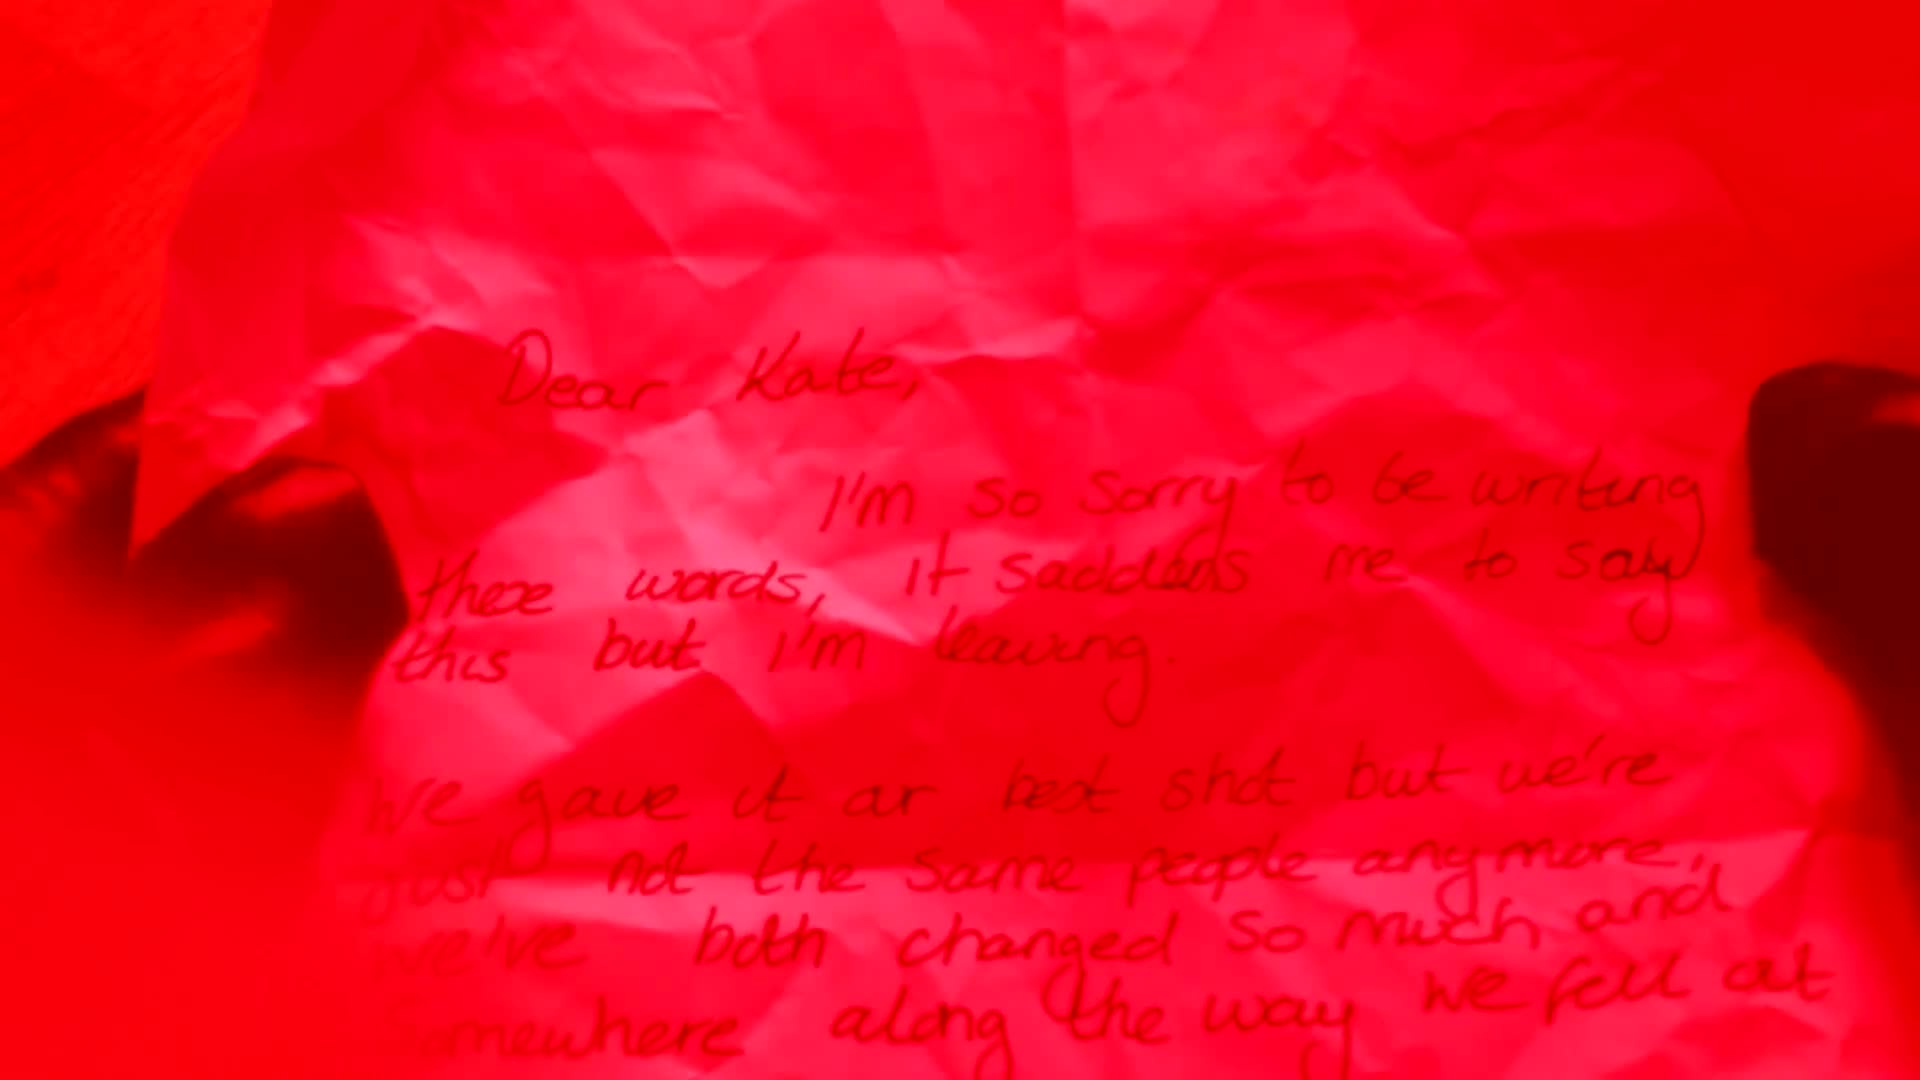 Dear Kate,
I'm so sorry to be writing
these words, it saddens me to say
this but I'm leaving.
We gave it our best shot but we're
just not the same people anymore,
we've both changed so much and
Somewhere along the way we fell out